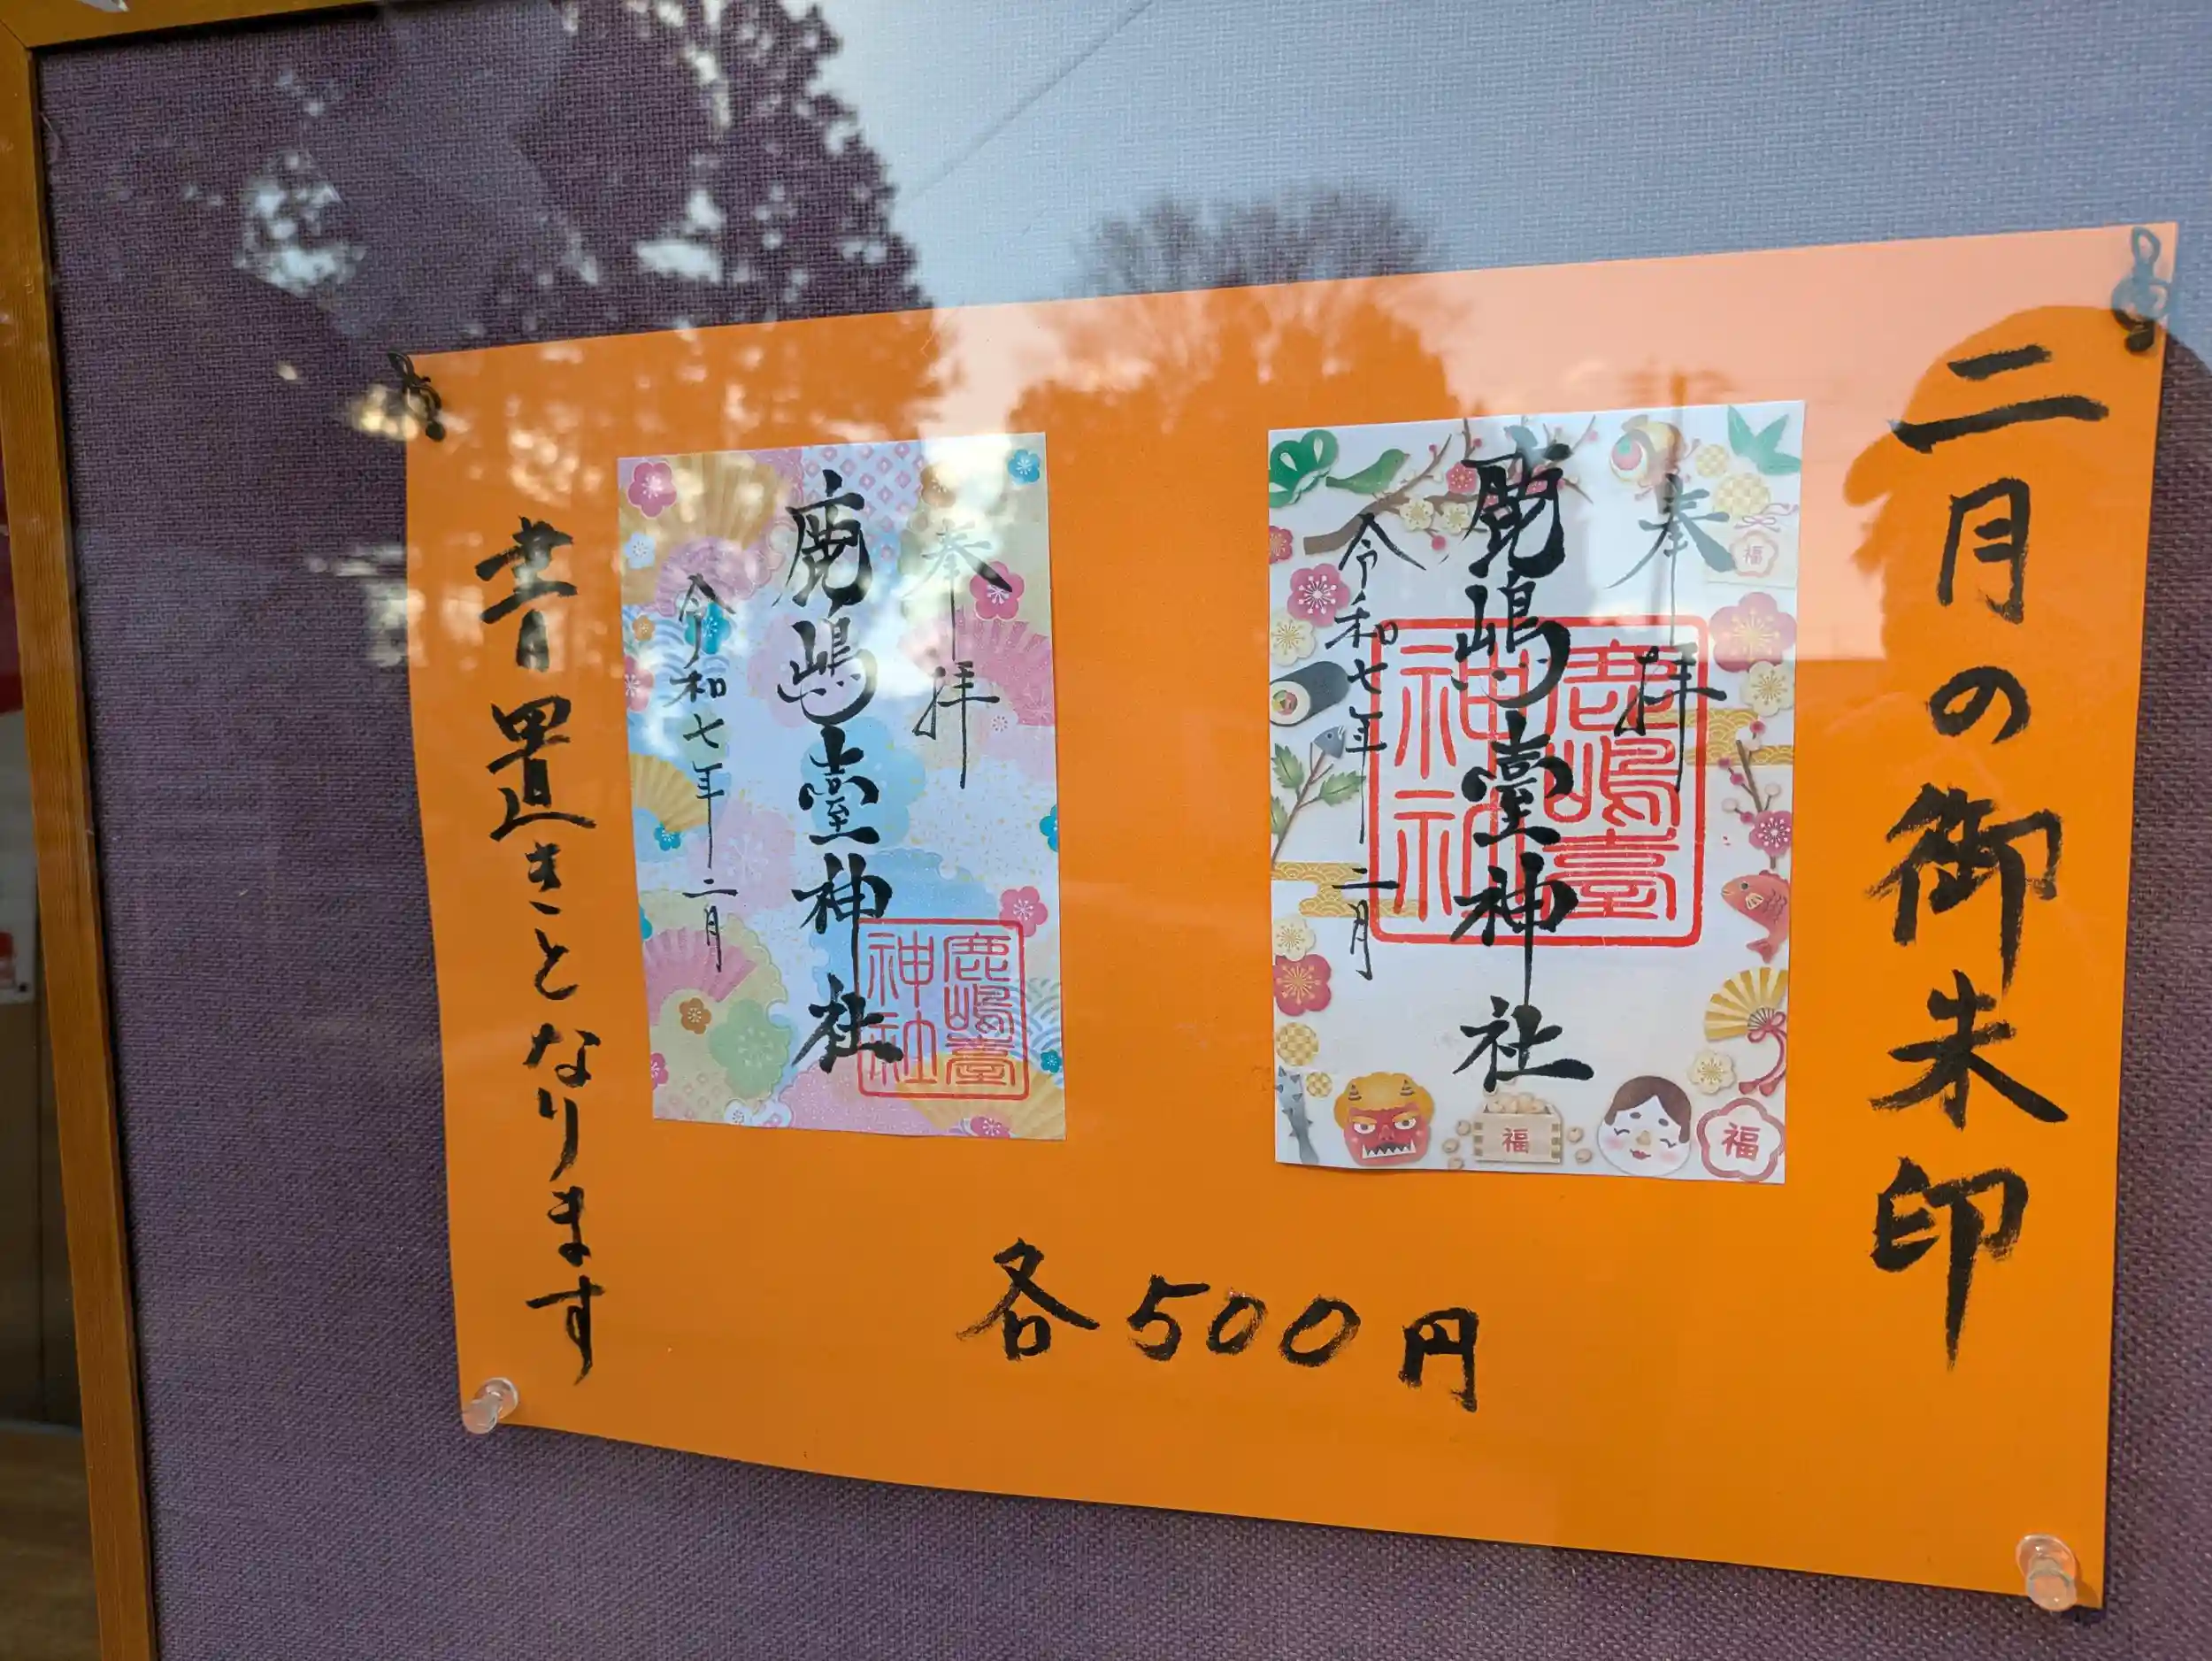 二月の御朱印
奉拝
鹿嶋臺神社
令和七年二月
鹿嶋臺
神社
福
福
福
奉拝
鹿嶋臺神社
令和七年二月
鹿嶋臺
神社
書置きとなります
各500円